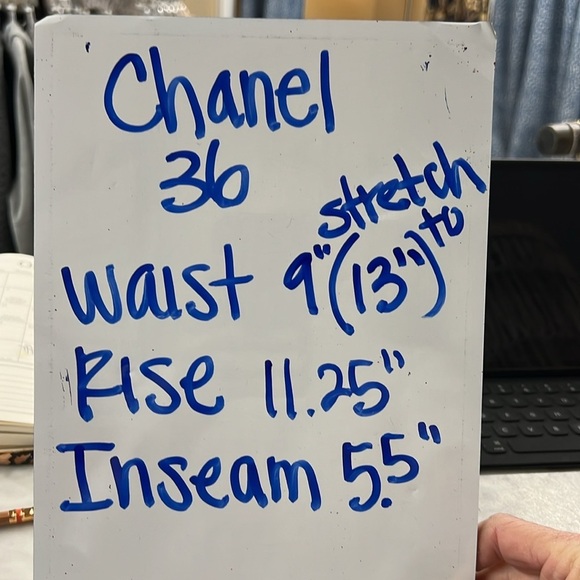 Chanel
36
stretch to
Waist 9" (13")
Rise 11.25"
Inseam 5.5"